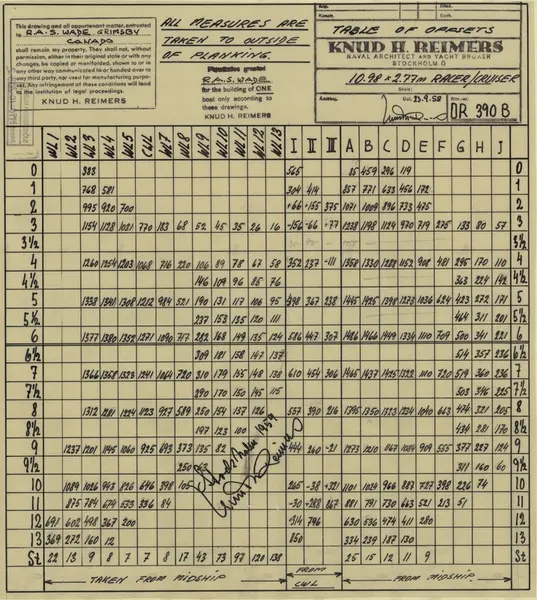 This drawing and all appurtenant matter, entrusted
to R.A.S. WADE, GRIMSBY
CANADA
shall remain my property. They shall not, without
permission, either in their original state or with any
changes, be copied or manifolded, shown to or in
any other way communicated to or handed over to
any third party, nor used for manufacturing purpo-
ses. Any infringement of these conditions will lead
to the institution of legal proceedings.
KNUD H. REIMERS
ALL MEASURES ARE
TAKEN TO OUTSIDE
OF PLANKING.
Permission granted
R.A.S. WADE
for the building of ONE
boat only according to
these drawings.
KNUD H. REIMERS
TABLE OF OFFSETS
KNUD H. REIMERS
NAVAL ARCHITECT AND YACHT BROKER
STOCKHOLM G
10.98 × 2.77m RACER/CRUISER
23.9.58
DR 390 B
WL1 WL2 WL3 WL4 WL5 CWL WL7 WL8 WL9 WL10 WL11 WL12 WL13 I II III A B C D E F G H J
0 383 565 85 459 296 119 0
1 768 581 304 414 857 771 633 456 172 1
2 995 920 700 +66 +155 375 1071 1009 896 733 475 2
3 1154 1128 1031 770 183 68 52 45 35 26 16 -156 -66 +77 1238 1198 1124 970 719 275 133 80 57 3
3½ 3½
4 1260 1254 1203 1068 716 220 106 89 78 67 58 352 237 -111 1358 1330 1288 1152 908 481 245 170 110 4
4½ 146 109 96 85 76 363 224 142 4½
5 1338 1341 1308 1212 984 521 190 131 117 106 95 498 367 238 1445 1425 1398 1273 1036 624 483 272 171 5
5½ 237 153 135 120 111 464 311 201 5½
6 1377 1380 1352 1271 1090 717 282 168 149 135 124 586 447 307 1426 1466 1449 1334 1110 709 500 341 221 6
6½ 309 181 158 147 137 514 357 236 6½
7 1366 1358 1323 1241 1064 720 310 179 155 148 138 610 454 306 1465 1437 1425 1322 1110 720 519 360 236 7
7½ 290 170 150 145 115 503 346 225 7½
8 1312 1281 1224 1123 927 589 250 154 137 126 557 390 216 1395 1350 1323 1234 1040 663 474 321 205 8
8½ 197 123 100 434 281 170 8½
9 1237 1201 1145 1060 925 693 373 135 82 444 260 -21 1273 1210 1167 1084 909 555 377 227 124 9
9½ 250 311 160 60 9½
10 1089 1026 943 826 646 398 105 265 -38 1101 1024 966 887 727 398 226 74 10
11 875 784 674 533 336 84 -30 +288 881 791 730 663 521 213 51 11
12 691 602 498 367 200 +314 796 630 536 474 411 280 12
13 369 272 160 12 850 334 239 187 130 13
St 22 13 9 8 7 7 8 17 43 73 97 120 138 25 15 12 11 9 St
TAKEN FROM MIDSHIP
FROM
CWL
FROM MIDSHIP